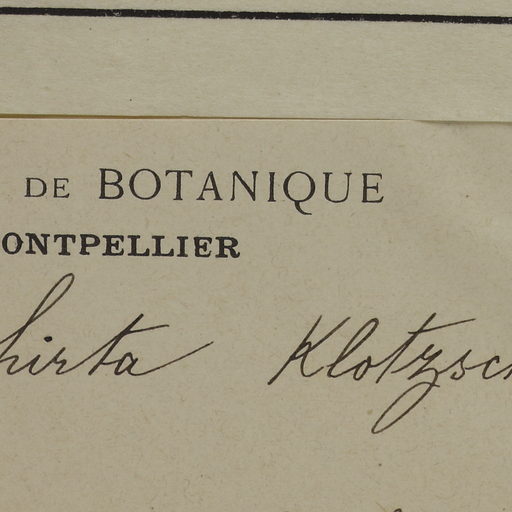 DE BOTANIQUE
ONTPELLIER
hirta Klotzsc